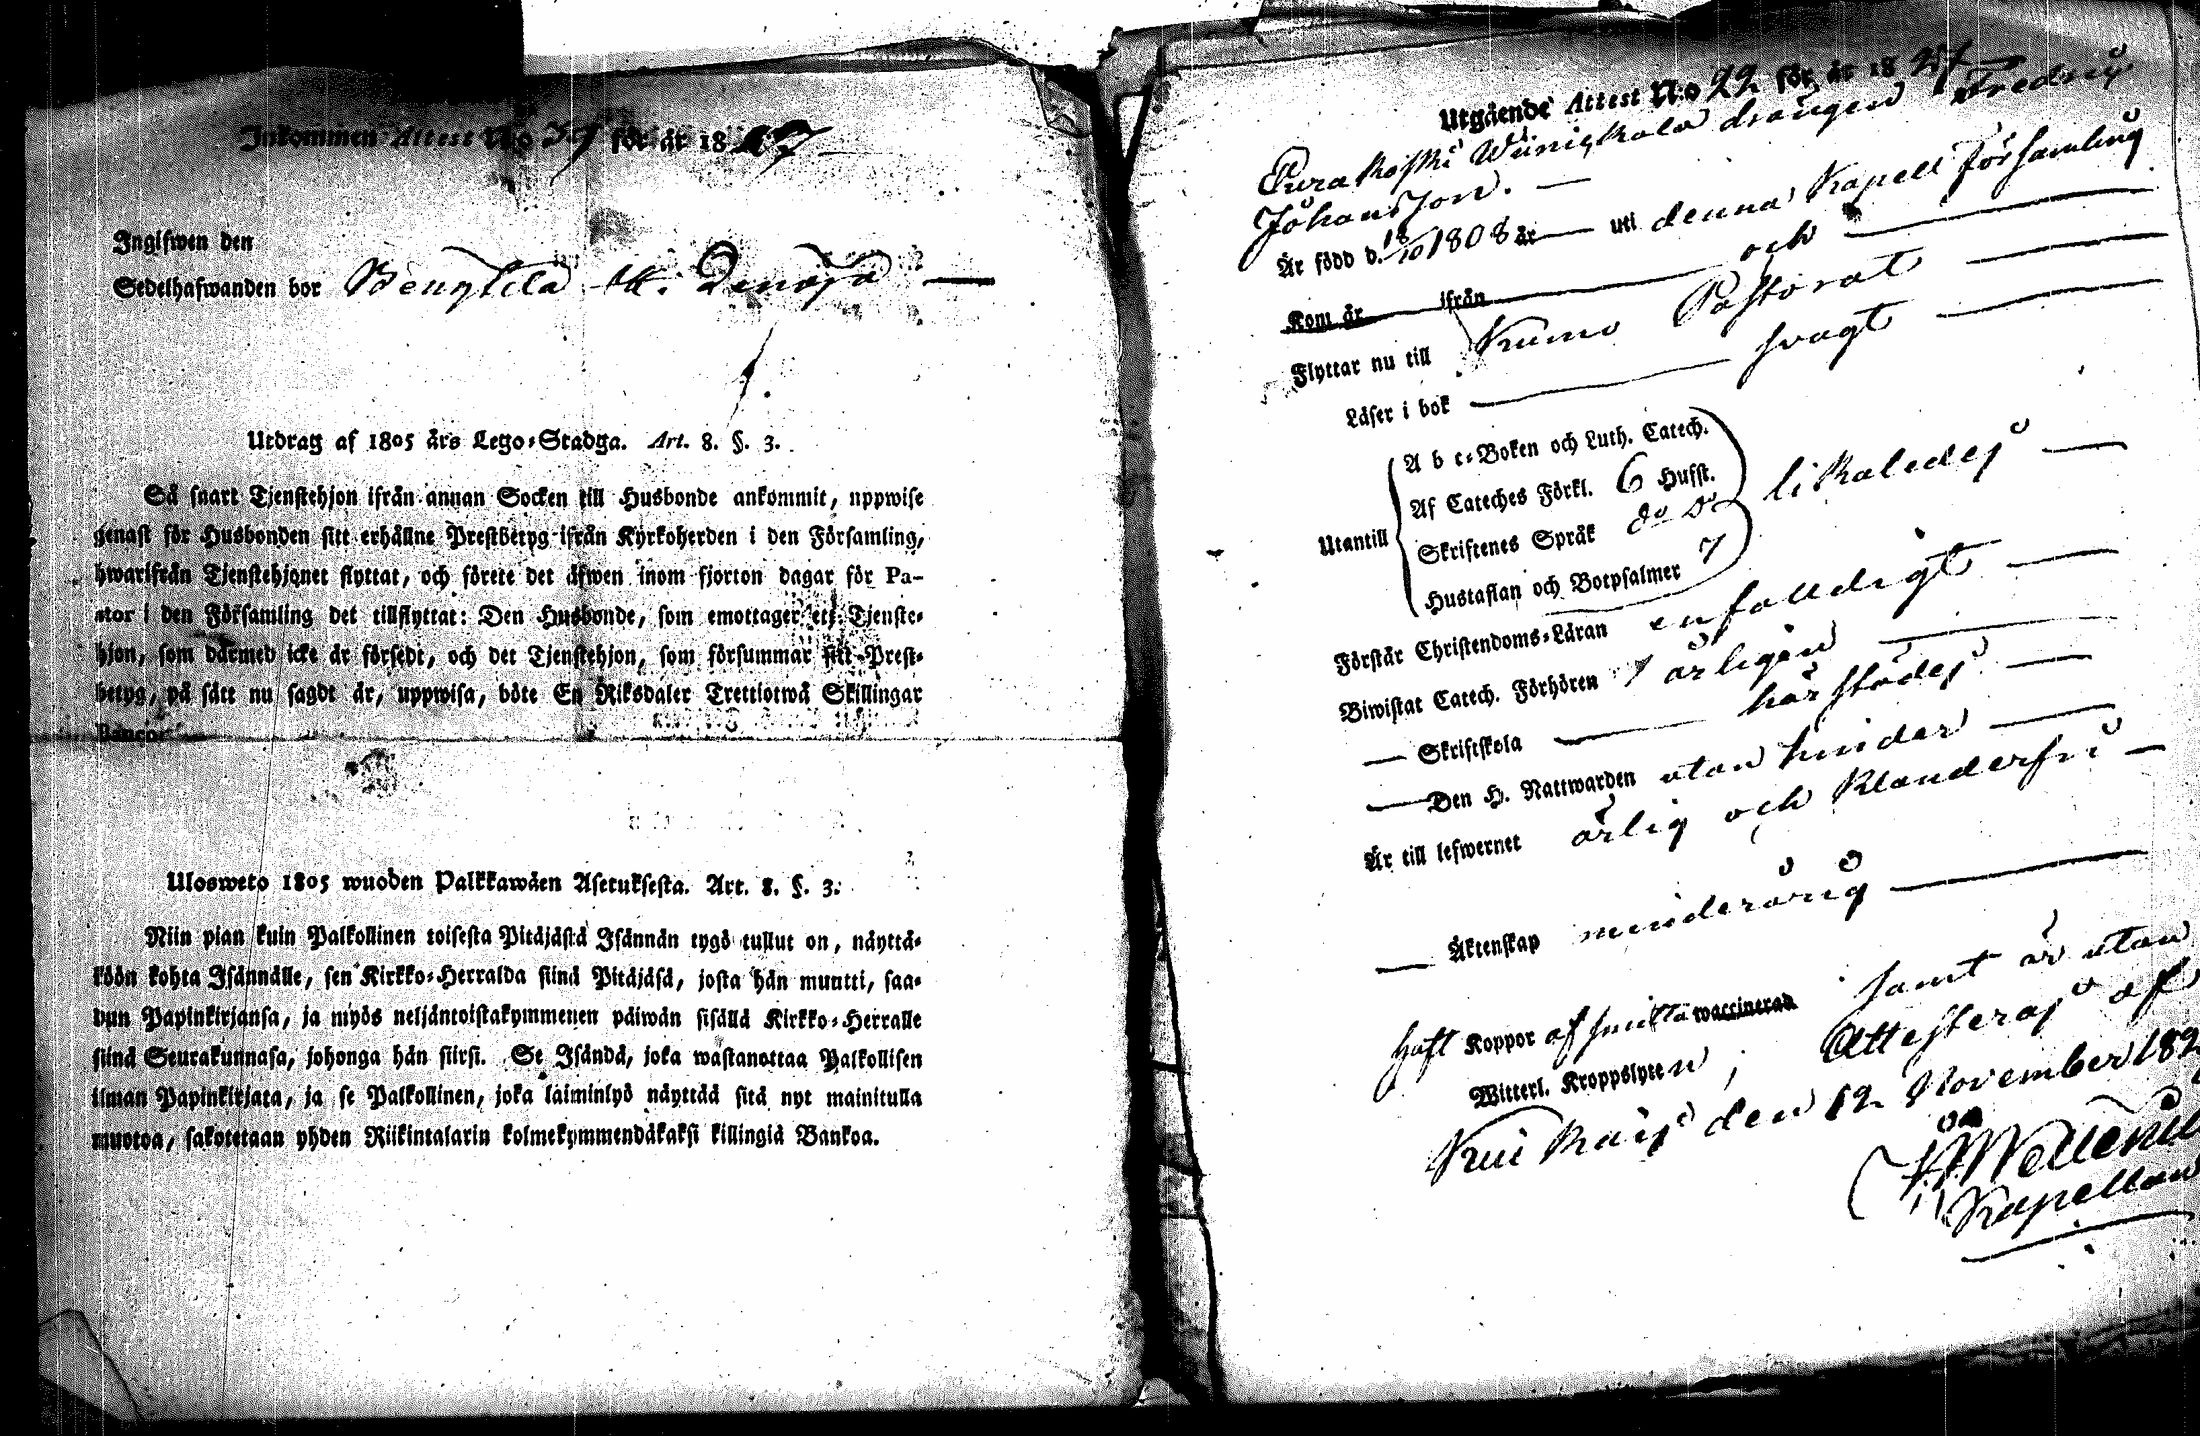 Inkommen Attest No 37 för år 1827
Ingifwen den
Sedelhafwanden bor Bengtilä
Utdrag af 1805 års Lego-Stadga. Art. 8. §. 3.
Så snart Tjenstehjon ifrån annan Socken till Husbonde ankommit, uppwise
genast för Husbonden sitt erhållne Prestbetyg ifrån Kyrkoherden i den Församling,
hwarifrån Tjenstehjonet flyttat, och förete det äfwen inom fjorton dagar för Pa-
stor i den Församling det tillflyttat: Den Husbonde, som emottager ett Tjenste-
hjon, som därmed icke är försedt, och det Tjenstehjon, som försummar sitt Prest-
betyg, på sätt nu sagdt är, uppwisa, böte En Riksdaler Trettiotwå Skillingar
Banco.
Ulosweto 1805 wuoden Palkkawäen Asetuksesta. Art. 8. §. 3.
Niin pian kuin Palkollinen toisesta Pitäjästä Isännän tygö tullut on, näyttä-
köön kohta Isännälle, sen Kirkko-Herralda siinä Pitäjäsä, josta hän muutti, saa-
dun Papinkirjansa, ja myös neljäntoistakymmenen päiwän sisällä Kirkko-Herralle
siinä Seurakunnasa, johonga hän siirsi. Se Isändä, joka wastanottaa Palkollisen
ilman Papinkirjata, ja se Palkollinen, joka laiminlyö näyttää sitä nyt mainitulla
muotoa, sakotetaan yhden Riikintalarin kolmekymmendäkaksi killingiä Bankoa.
Utgående Attest No 22 för år 1827
Purakoski drängen Fredric
Johansson.
Är född d. 18/10 1808 år uti denna Kapell församling
Kom år ifrån och
Flyttar nu till Kumo Pastorat
Läser i bok svagt
A b c-Boken och Luth. Catech.
Af Cateches Förkl. 6 Hufst.
Utantill Skriftenes Språk do do likaledes
Hustaflan och Botpsalmer 7
Förstår Christendoms-Läran enfaldigt
Biwistat Catech. Förhören årligen
Skriftskola härstädes
Den H. Nattwarden utan hinder
Är till lefwernet ärlig och klanderfri
Äktenskap minderårig
haft Koppor af smitta waccinerad samt är utan
Witterl. Kroppslyten, Attesteras af
Kuikais den 12 November 182
Kapellan